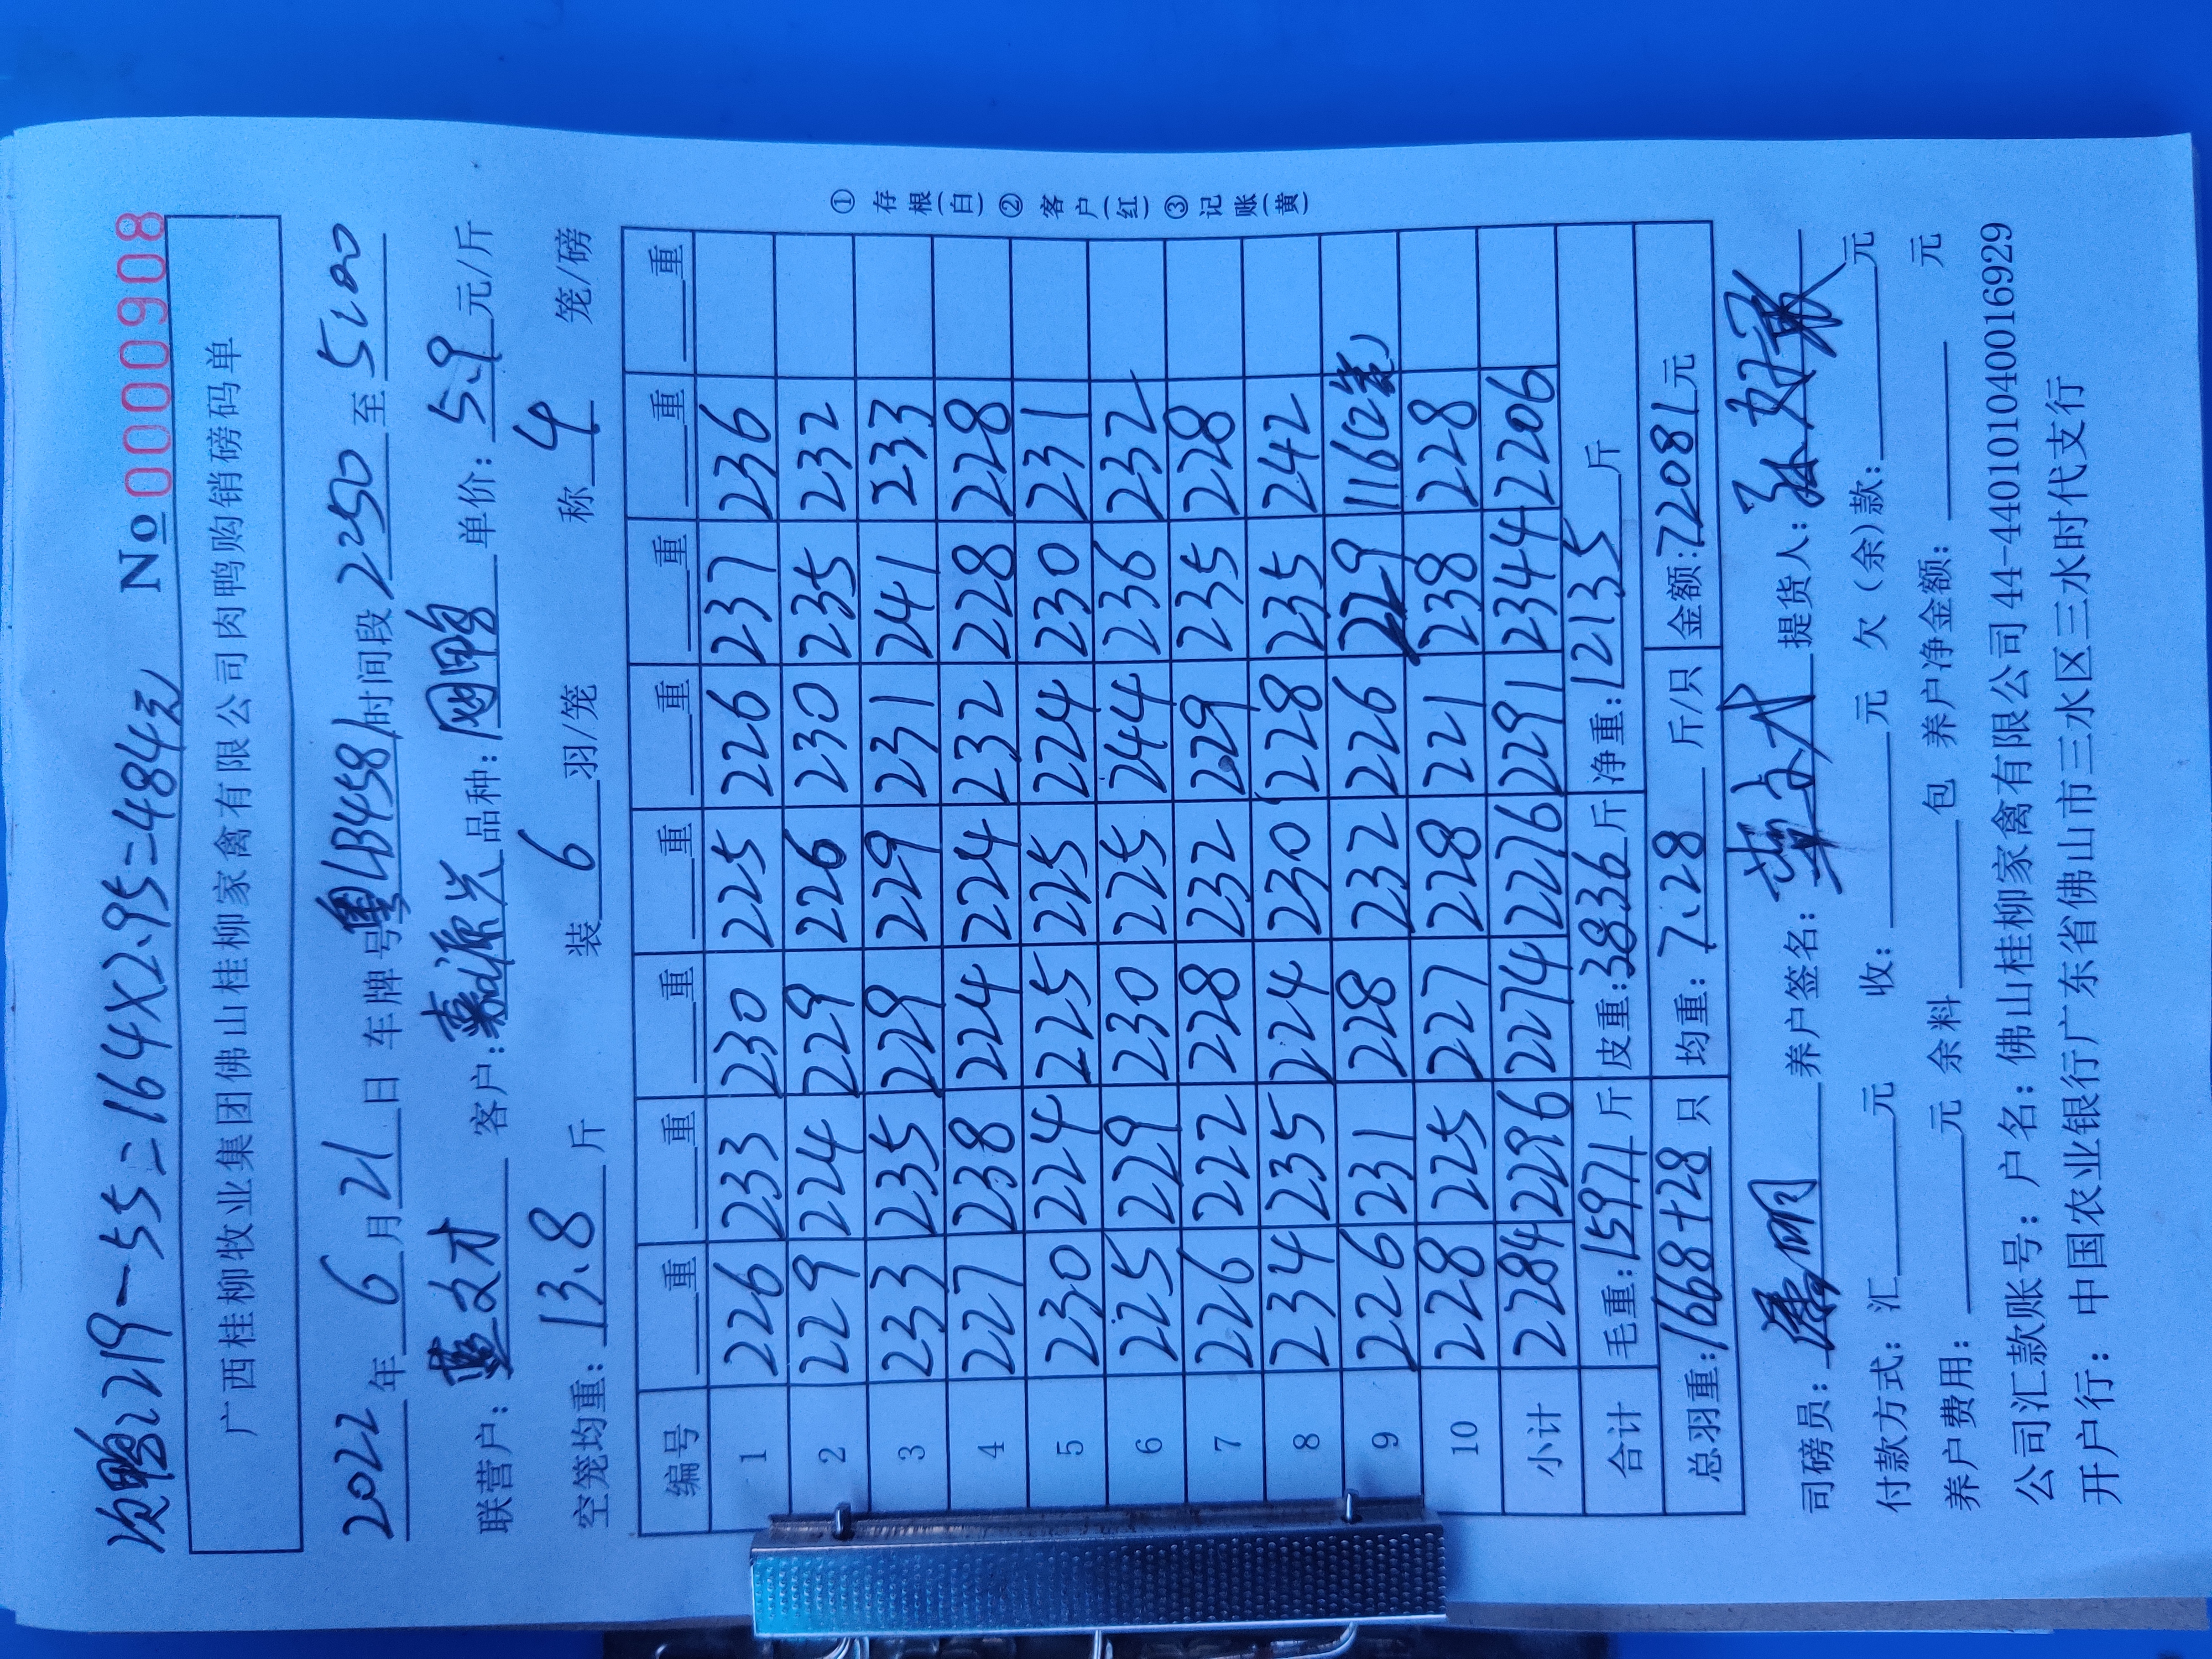 次鸭219-55=164×2.95=484元 No 0000908
广西桂柳牧业集团佛山桂柳家禽有限公司肉鸭购销磅码单
2022年6月21日 车牌号粤LB4581时间段2350至5:00
联营户：文才 客户：源兴 品种：网鸭 单价：5.9元/斤
空笼均重：13.8斤 装6羽/笼 称4笼/磅
编号 重 重 重 重 重 重 重 重
1 226 233 230 225 226 237 236
2 229 224 229 226 230 235 232
3 233 235 229 229 231 241 233
4 227 238 224 224 232 228 228
5 230 224 225 225 224 230 231
6 225 229 230 225 244 236 232
7 226 222 228 232 229 235 228
8 234 235 224 230 228 235 242
9 226 231 228 232 226 229 116(2笼)
10 228 225 227 228 221 238 228
小计 2284 2296 2274 2276 2291 2344 2206
合计 毛重：15971斤 皮重：3836斤 净重：12135斤
总羽重：1668+28只 均重：7.28斤/只 金额：72081元
司磅员：明 养户签名：文才 提货人：
付款方式：汇 元 收： 元 欠（余）款： 元
养户费用： 元 余料 包 养户净金额： 元
公司汇款账号：户名：佛山桂柳家禽有限公司44-440101040016929
开户行：中国农业银行广东省佛山市三水区三水时代支行
①存根(白)②客户(红)③记账(黄)